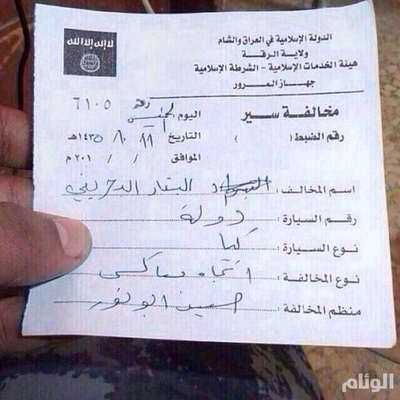 الدولة الإسلامية في العراق والشام
ولاية الرقة
هيئة الخدمات الإسلامية - الشرطة الإسلامية
جهاز المرور
لا إله إلا الله
الله رسول محمد
مخالفة سير رقم ٦١٠٥
رقم الضبط: ( ) اليوم الخميس
التاريخ ١٤٣٥هـ
الموافق / / ٢٠١م
اسم المخالف: البتار البحريني
رقم السيارة: دولة
نوع السيارة: كيا
نوع المخالفة: اتجاه معاكس
منظم المخالفة: حسين ابو نور
الوئام